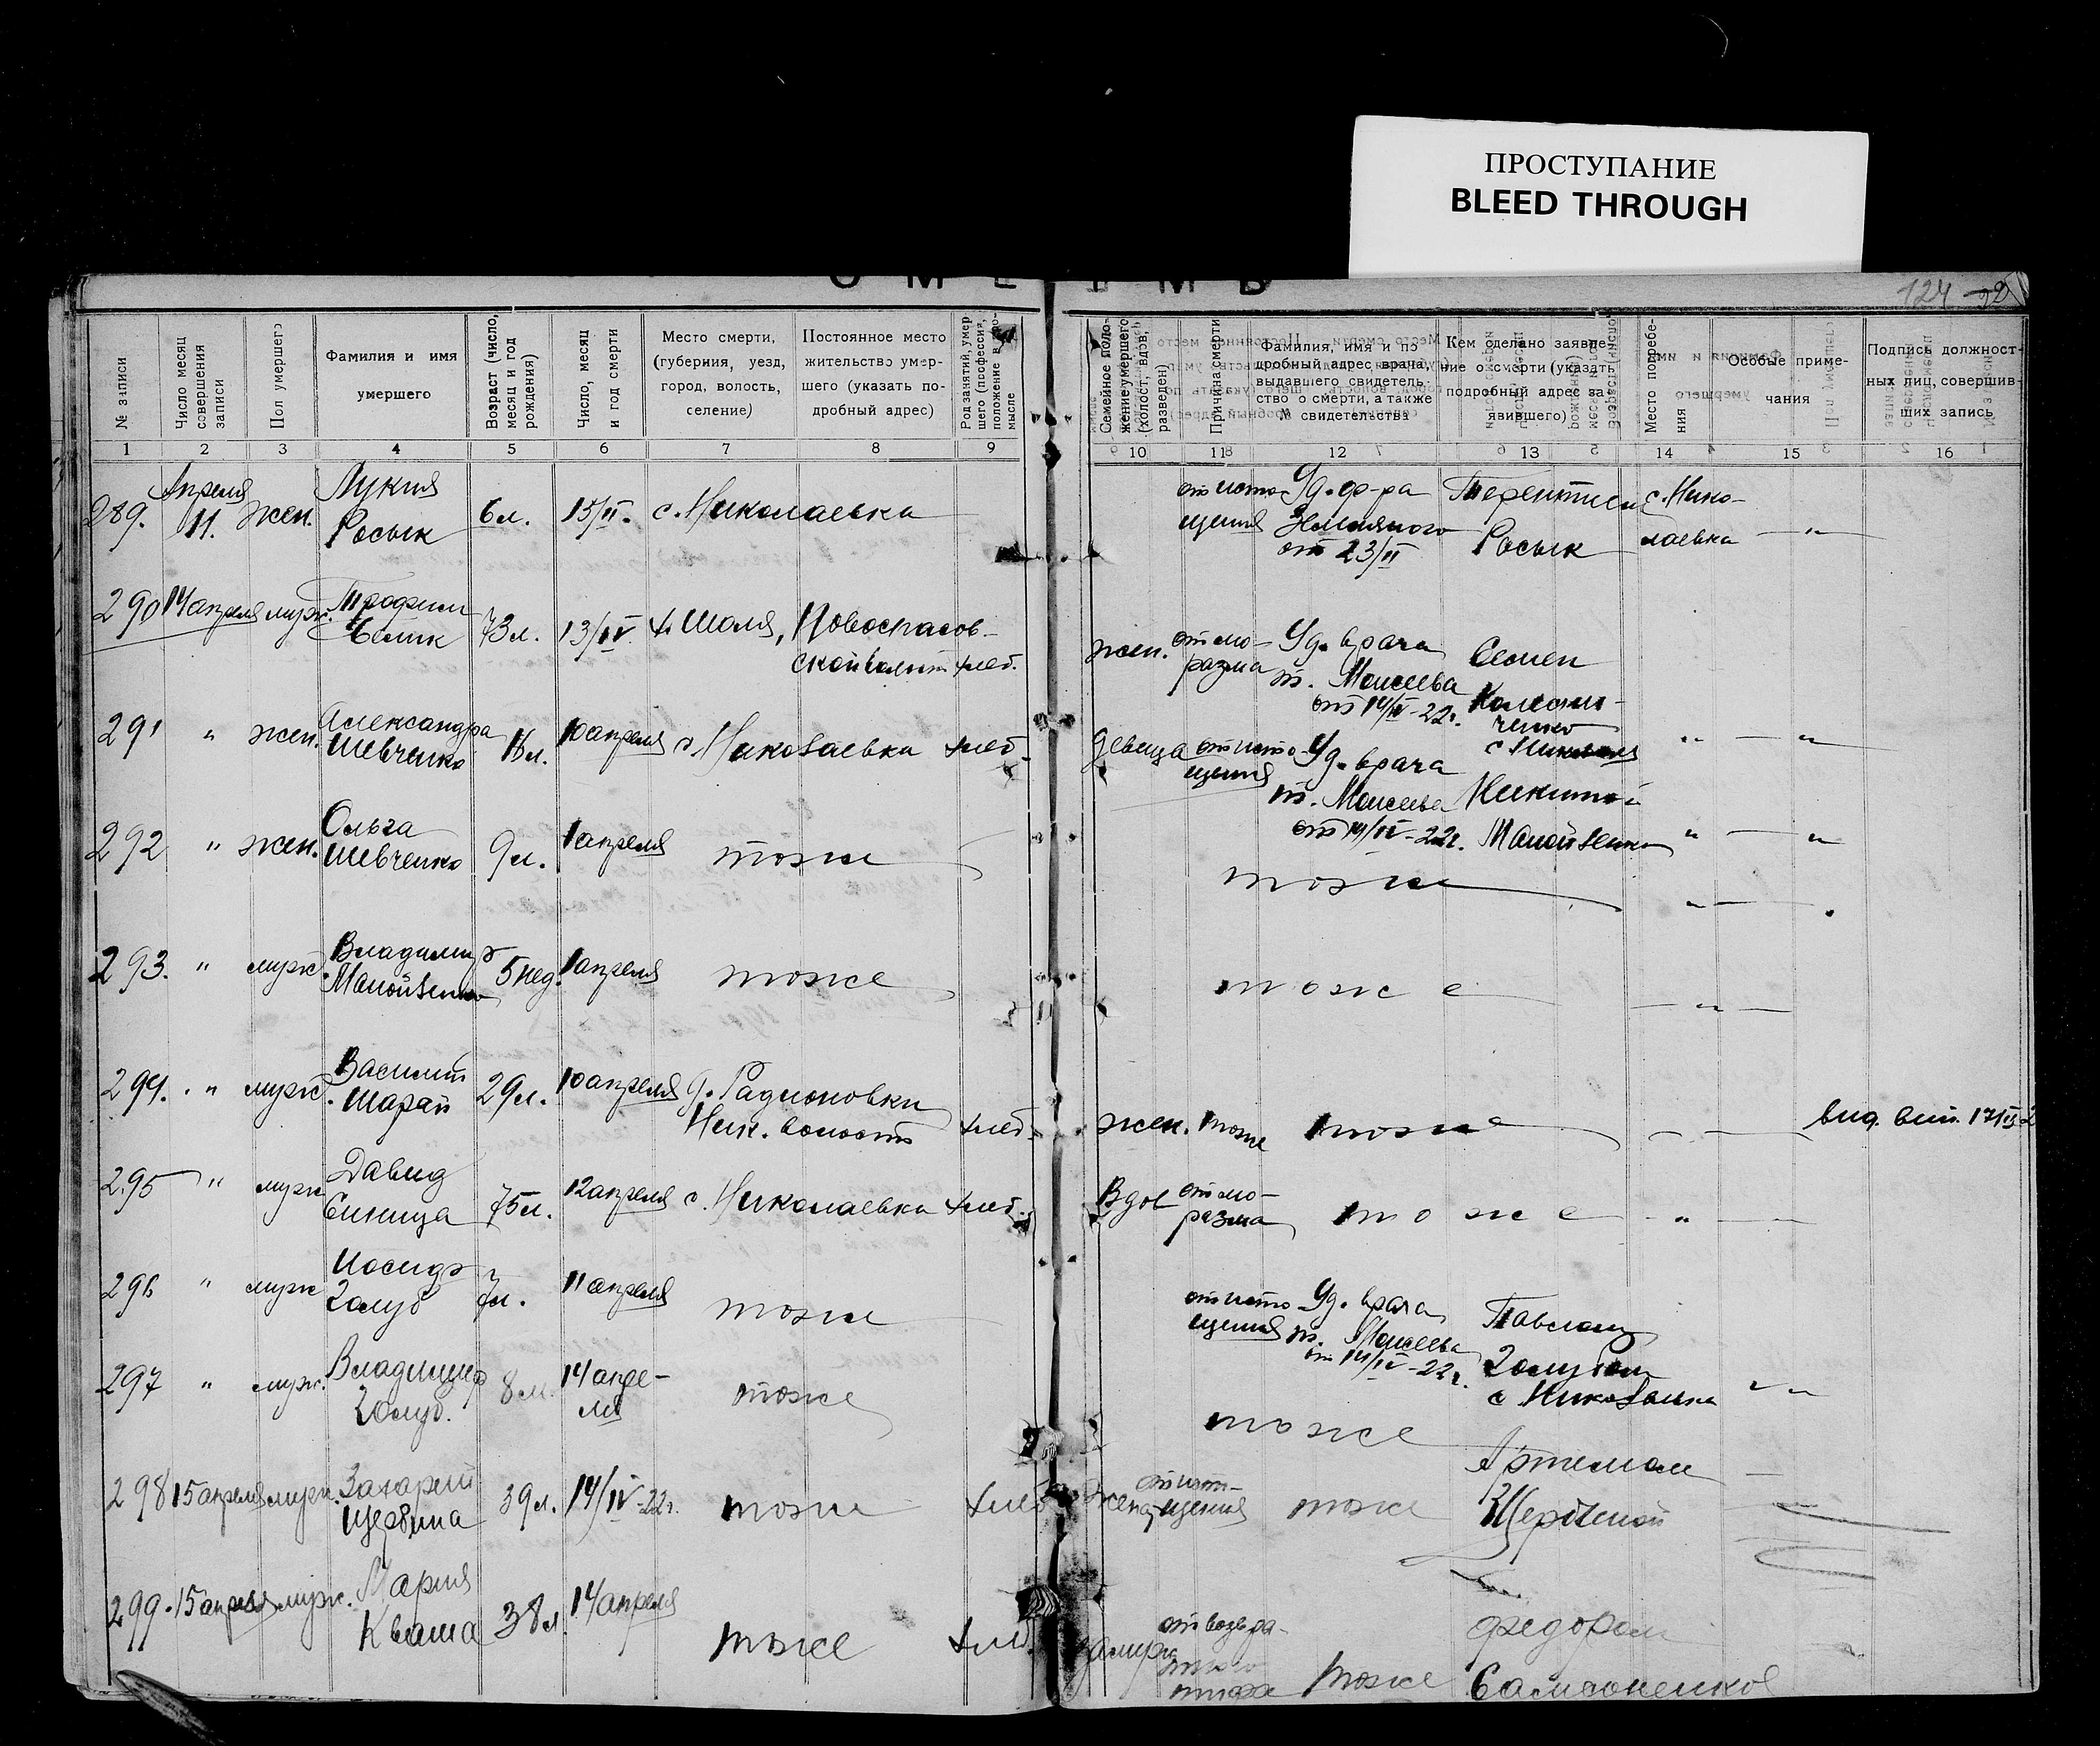 ПРОСТУПАНИЕ
BLEED THROUGH
124
№ записи
Число месяц совершения записи
Пол умершего
Фамилия и имя
умершего
Возраст (число, месяц и год рождения)
Число, месяц и год смерти
Место смерти,
(губерния, уезд,
город, волость,
селение)
Постоянное место
жительство умер-
шего (указать по-
дробный адрес)
Род занятий, умер
шего (профессия,
положение в про-
мысле
Семейное поло-
жение умершего
(холост, вдов,
разведен)
Причина смерти
Фамилия, имя и по
дробный адрес врача,
выдавшего свидетель-
ство о смерти, а также
№ свидетельства
Кем сделано заявле-
ние о смерти (указать
подробный адрес за-
явившего)
Место погребе-
ния
Особые приме-
чания
Подпись должност-
ных лиц, совершив-
ших запись
1 2 3 4 5 6 7 8 9 10 11 12 13 14 15 16
289. Апреля 11. жен. Лукия Росык 6 л. 15/II. с. Николаевка
от исто-
щения
Уд. ф-ра
от 23/II
Росык
с. Нико-
лаевка — " —
290 14 апреля муж. Трофим Белик 73 л. 13/IV х. Шаля, Новоспасов-
ской волости хлеб.
жен. от ма-
разма
Уд. врача
т. Моисеева
от 14/IV-22 г.
Семен
291 " жен. Александра Шевченко 10 апреля с. Николаевка хлеб.
девица от исто-
щения
Уд. врача
т. Моисеева
от 14/IV-22 г.
Никитой
Манойленко
" — "
292 " жен. Ольга Шевченко 9 л. 1 апреля тоже
тоже
" — "
293. " муж. Владимир Манойленко 5 нед. 1 апреля тоже
тоже
— " —
294. " муж. Василий Шарай 29 л. 10 апреля д. Радионовки
Ник. волости хлеб.
жен. тоже тоже — " —
295 " муж. Давид Синица 75 л. 12 апреля с. Николаевка хлеб.
Вдов от ма-
разма
тоже — " —
296 " муж. Иосиф Голуб 7 л. 11 апреля тоже
от исто-
щения
Уд. врача
т. Моисеева
от 14/IV-22 г.
Павлом
Голубом
с. Николаевка
" "
297 " муж. Владимир Голуб. 8 л. 14 апре-
ля
тоже
тоже
298 15 апреля муж. Захарий Щербина 39 л. 14/IV-22 г. тоже хлеб
тоже
Артемом
Щербиной
299. 15 апреля муж. Мария Кваша 38 л. 14 апреля тоже хлеб.
замуж.
от возвра-
тного
тифа
тоже
Федором
Самсоненко